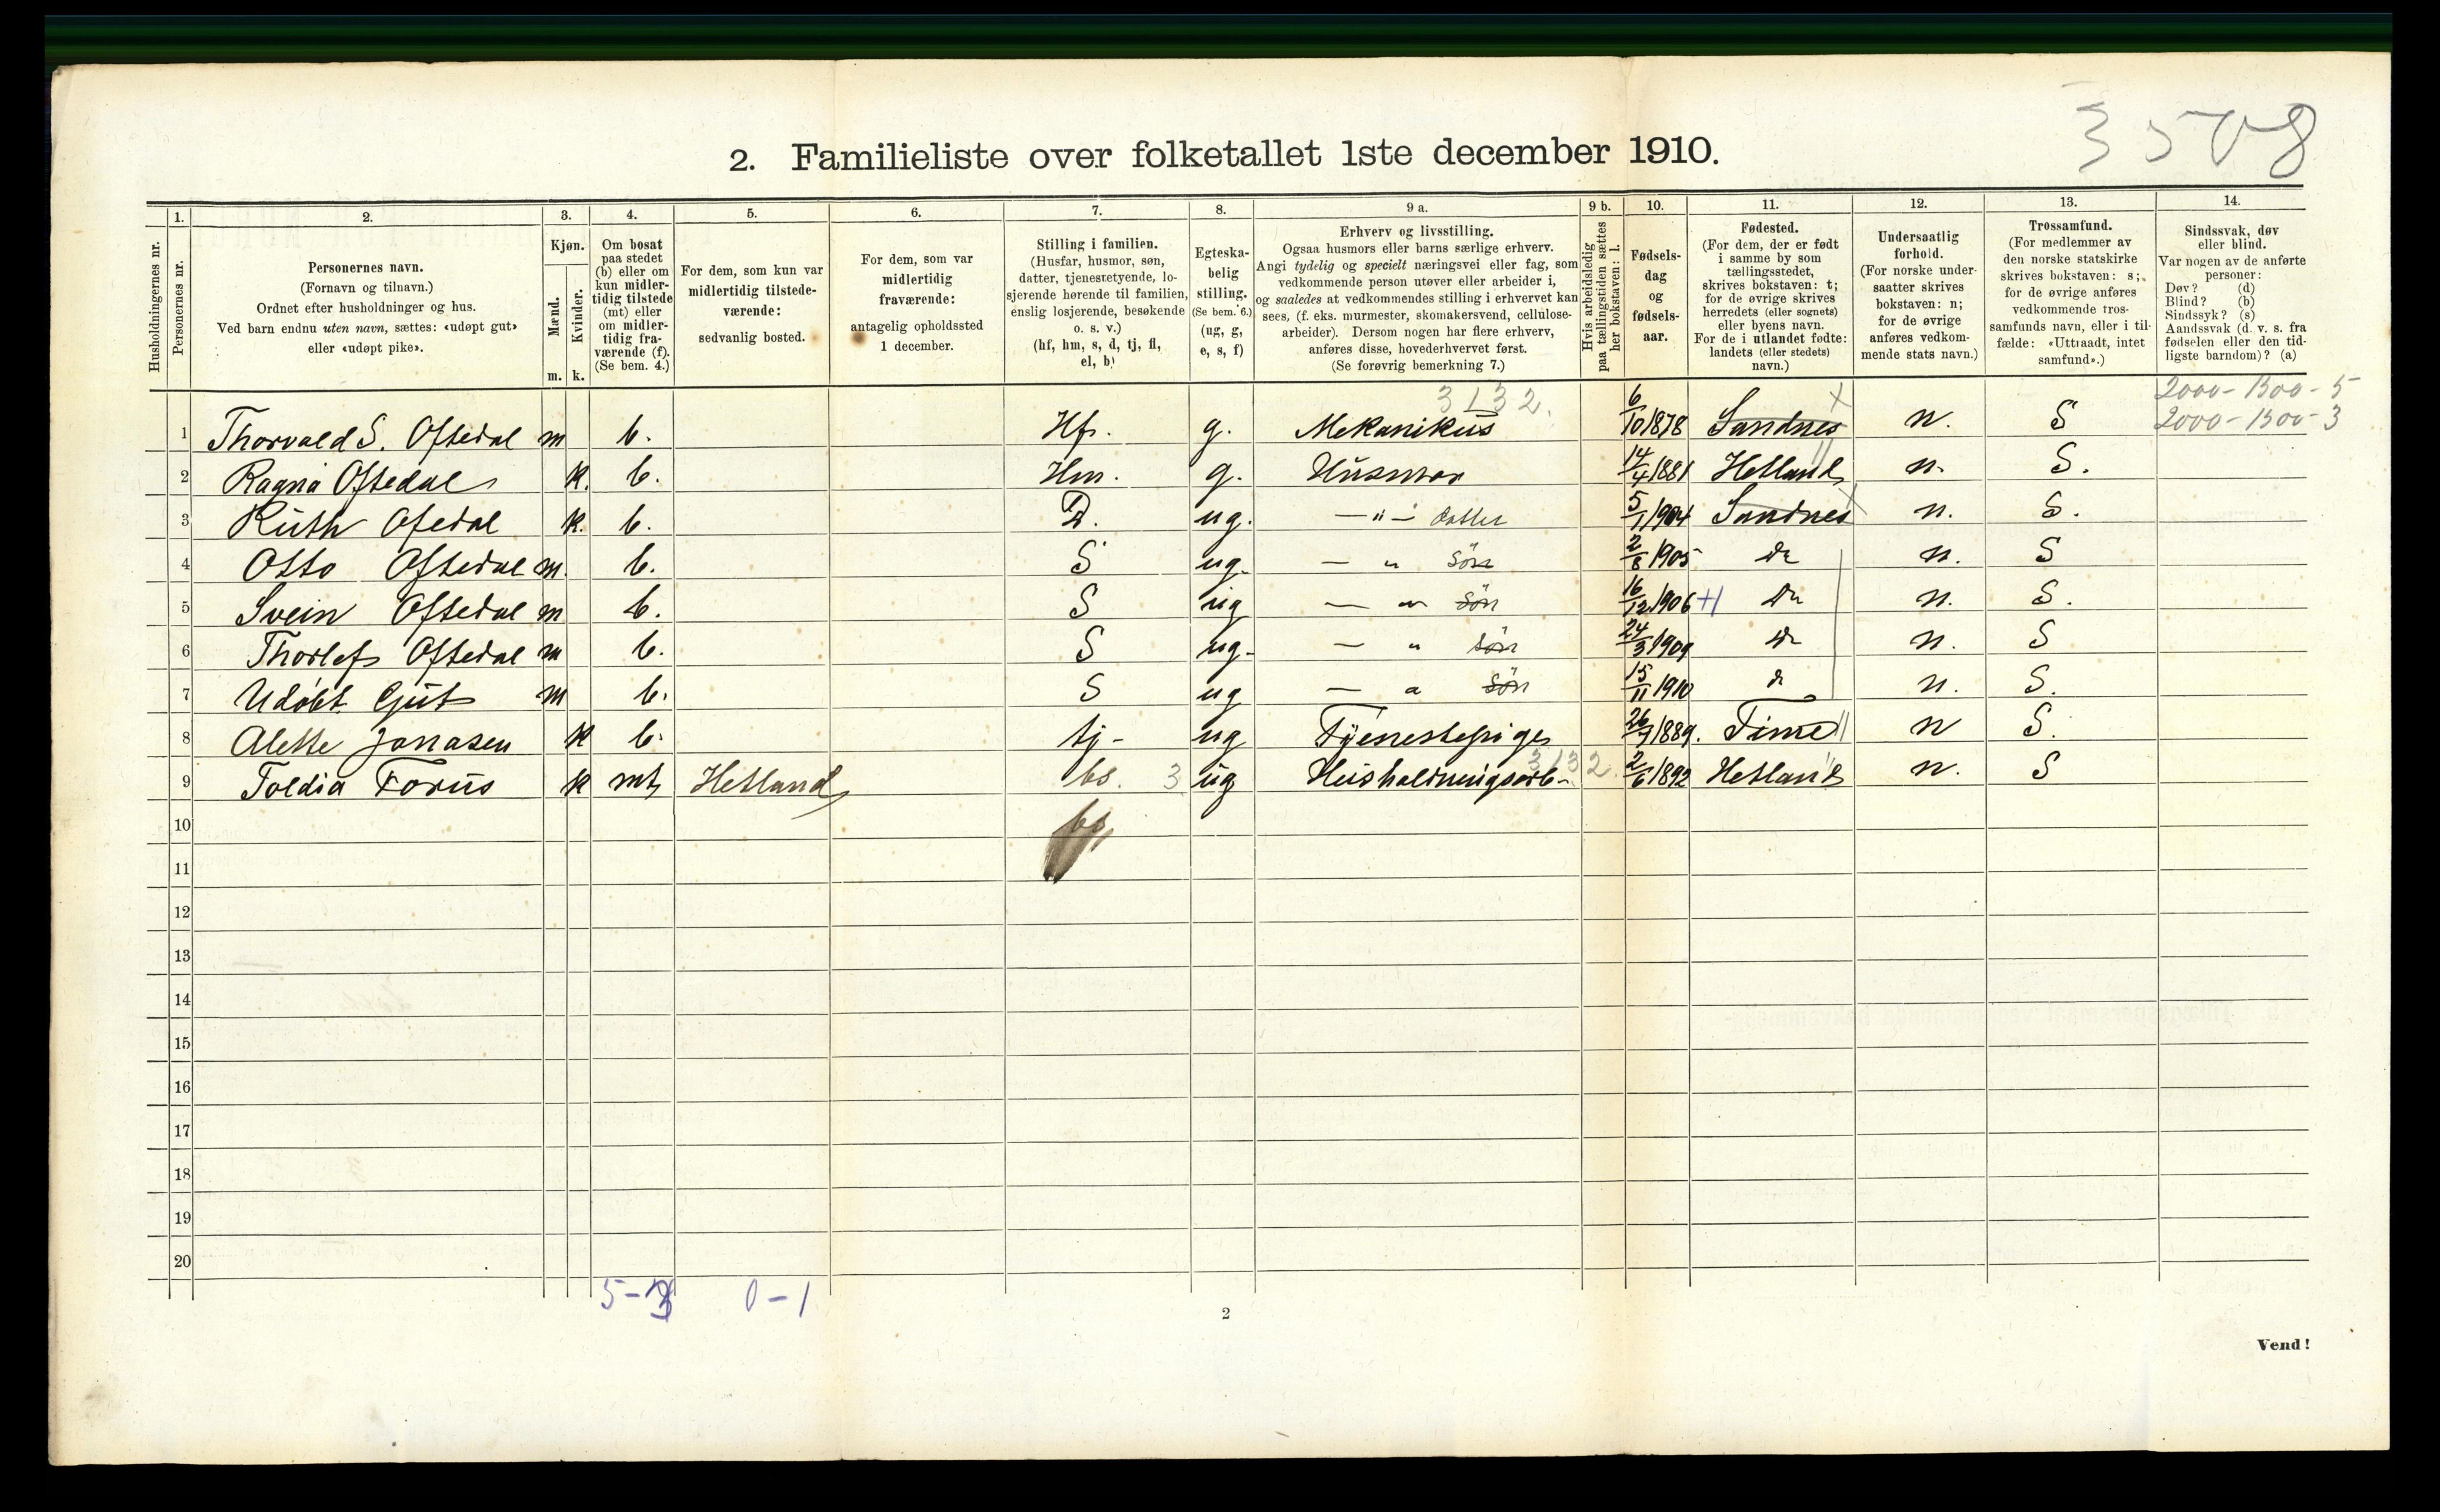 3508
2. Familieliste over folketallet 1ste december 1910.
1. 2. 3. 4. 5. 6. 7. 8. 9 a. 9 b. 10. 11. 12. 13. 14.
Husholdningernes nr.
Personernes nr.
Personernes navn.
(Fornavn og tilnavn.)
Ordnet efter husholdninger og hus.
Ved barn endnu uten navn, sættes: «udøpt gut»
eller «udøpt pike».
Kjøn.
Mænd.
Kvinder.
m. k.
Om bosat
paa stedet
(b) eller om
kun midler-
tidig tilstede
(mt) eller
om midler-
tidig fra-
værende (f).
(Se bem. 4.)
For dem, som kun var
midlertidig tilstede-
værende:
sedvanlig bosted.
For dem, som var
midlertidig
fraværende:
antagelig opholdssted
1 december.
Stilling i familien.
(Husfar, husmor, søn,
datter, tjenestetyende, lo-
sjerende hørende til familien,
enslig losjerende, besøkende
o. s. v.)
(hf, hm, s, d, tj, fl,
el, b)
Egteska-
belig
stilling.
(Se bem. 6.)
(ug, g,
e, s, f)
Erhverv og livsstilling.
Ogsaa husmors eller barns særlige erhverv.
Angi tydelig og specielt næringsvei eller fag, som
vedkommende person utøver eller arbeider i,
og saaledes at vedkommendes stilling i erhvervet kan
sees, (f. eks. murmester, skomakersvend, cellulose-
arbeider). Dersom nogen har flere erhverv,
anføres disse, hovederhvervet først.
(Se forøvrig bemerkning 7.)
Hvis arbeidsledig
paa tællingstiden sættes
her bokstaven: l.
Fødsels-
dag
og
fødsels-
aar.
Fødested.
(For dem, der er født
i samme by som
tællingsstedet,
skrives bokstaven: t;
for de øvrige skrives
herredets (eller sognets)
eller byens navn.
For de i utlandet fødte:
landets (eller stedets)
navn.)
Undersaatlig
forhold.
(For norske under-
saatter skrives
bokstaven: n;
for de øvrige
anføres vedkom-
mende stats navn.)
Trossamfund.
(For medlemmer av
den norske statskirke
skrives bokstaven: s;
for de øvrige anføres
vedkommende tros-
samfunds navn, eller i til-
fælde: «Uttraadt, intet
samfund».)
Sindssvak, døv
eller blind.
Var nogen av de anførte
personer:
Døv? (d)
Blind? (b)
Sindssyk? (s)
Aandssvak (d. v. s. fra
fødselen eller den tid-
ligste barndom)? (a)
3132. 2000-1500-5
1 Thorvald S. Oftedal m b. Hf. g. Mekanikus 6/10 1878 Sandnes n. S 2000-1500-3
2 Ragna Oftedal k. b. Hm. g. Husmor 14/4 1881 Hetland n. S.
3 Ruth Ofedal k. b. D. ug. —"— datter 5/1 1904 Sandnes n. S.
4 Otto Oftedal m. b. S ug. — " sön 2/8 1905 do n. S
5 Svein Oftedal m b. S ug — " sön 16/12 1906 do n. S.
6 Thorlef Oftedal m b. S ug. — " sön 24/3 1909 do n. S
7 Udöbt Gut m b. S ug — " sön 15/11 1910 d n. S.
8 Alette Jonasen k b. tj- ug Tjenestepige 26/7 1889. Time n S.
9 Toldia Forus k mt Hetland bs. 3 ug Husholdningsarb- 3132. 2/6 1892 Hetland n. S
10 bs
11
12
13
14
15
16
17
18
19
20
5-3 0-1
2
Vend!